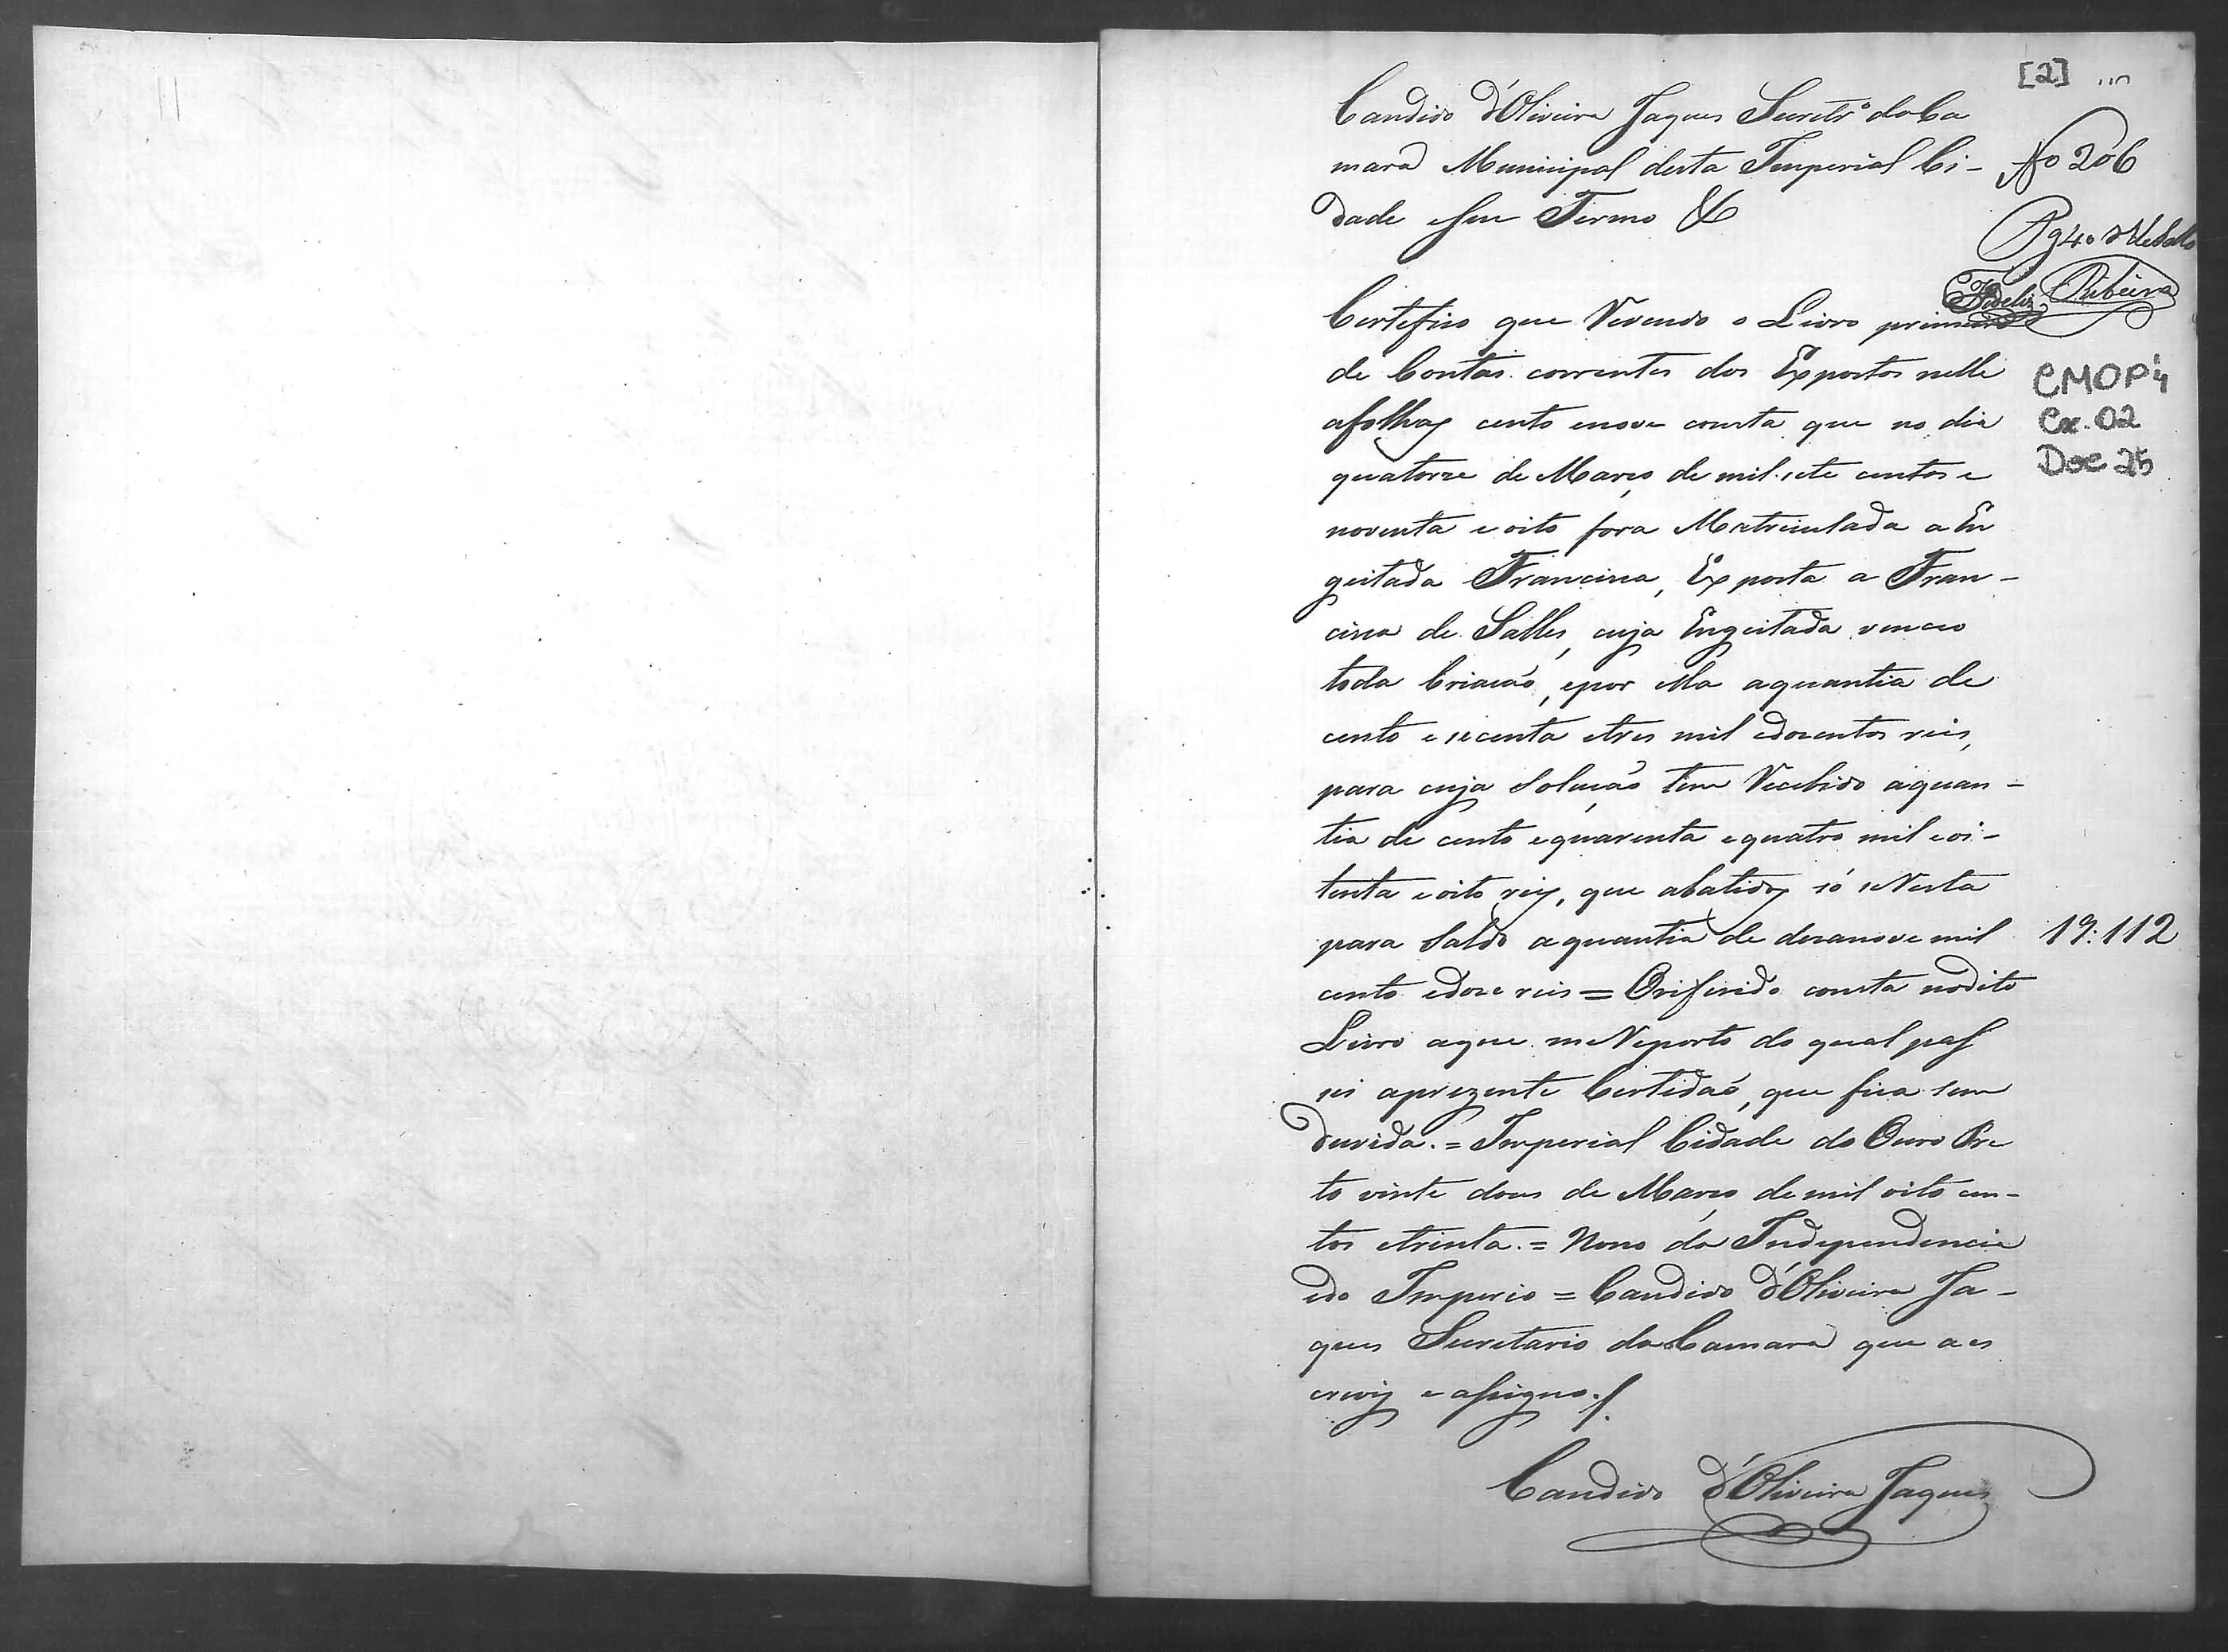 [2]
Candido d'Oliveira Jaques Secretr.º da Ca
mara Municipal desta Imperial Ci-
dade e seu Termo &
Nº 206
Pg 40 de Sello
Fidelis Ribeiro
CMOP 4
Cx. 02
Doc 25
Certefico que Revendo o Livro primeiro
de Contas correntes dos Expostos nelle
afolhas cento enove consta que no dia
quatorze de Março de mil sete centos e
noventa e oito fora Matriculada a En
geitada Francisca, Exposta a Fran-
cisca de Salles, cuja Engeitada venceo
toda Criacaõ, epor ella aquantia de
cento e secenta etres mil edozentos reis,
para cuja Soluçaõ tem Recebido aquan-
tia de cento equarenta equatro mil eoi-
tenta eoito reis, que abatidos só seResta
para Saldo aquantia de dezanove mil
19:112
cento edoze reis = Oriferido consta nodito
Livro aque meReporto do qual pas
sei aprezente Certidaõ, que fica sem
duvida. = Imperial Cidade do Ouro Pre
to vinte dous de Março de mil oito cen-
tos etrinta. = Nono da Independencia
edo Imperio = Candido d'Oliveira Ja-
ques Secretario da Camara que a es
crevij e assigno.
Candido d'Oliveira Jaques